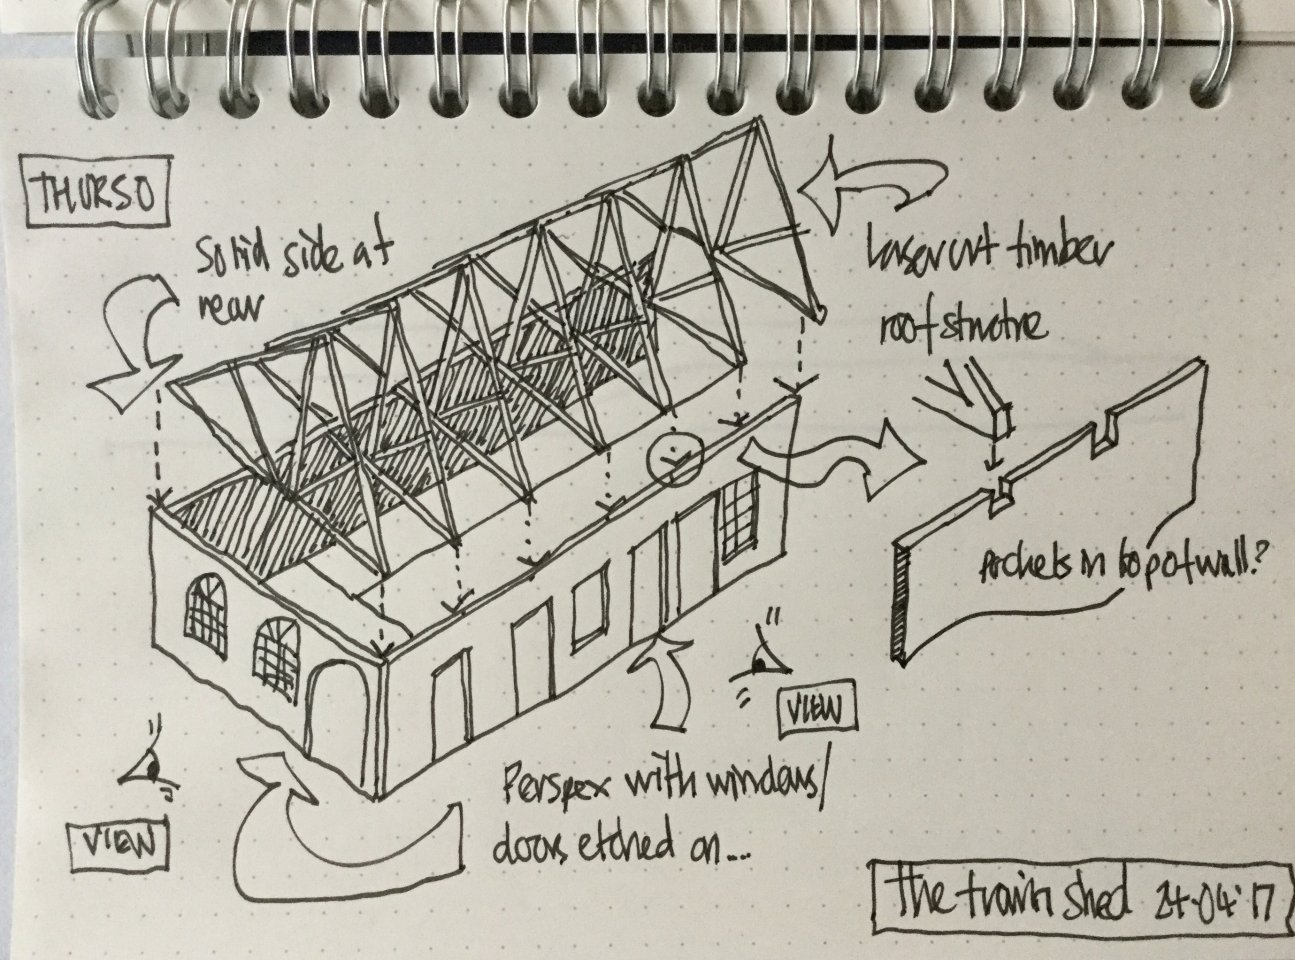 THURSO
Solid side at
rear
Lasercut timber
roof structure
Pockets in top of wall?
VIEW
Perspex with windows/
doors etched on...
VIEW
The train shed 24.04.'17